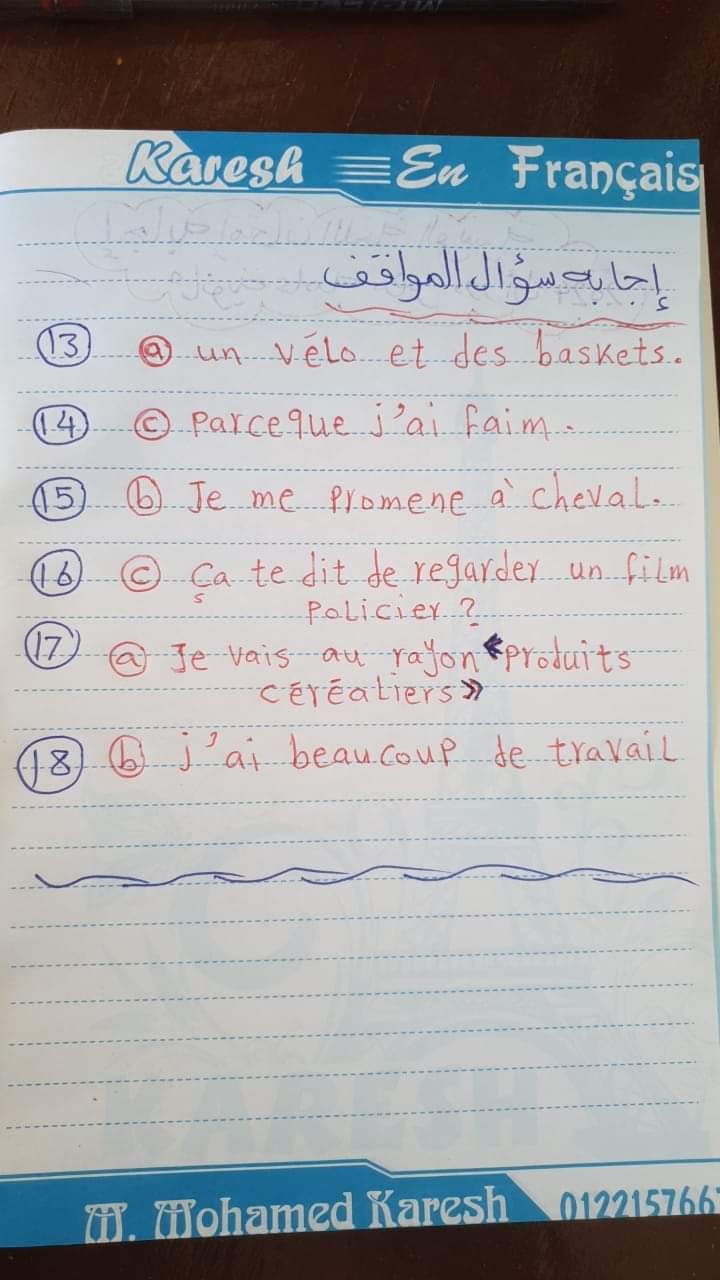 Karesh En Français
إجابه سؤال المواقف
13 a un vélo et des baskets.
14 c Parceque j'ai faim.
15 b Je me promene à cheval.
16 c Ça te dit de regarder un film
policier ?
17 a Je vais au rayon «produits
céréatiers»
18 b j'ai beaucoup de travail
M. Mohamed Karesh 012215766